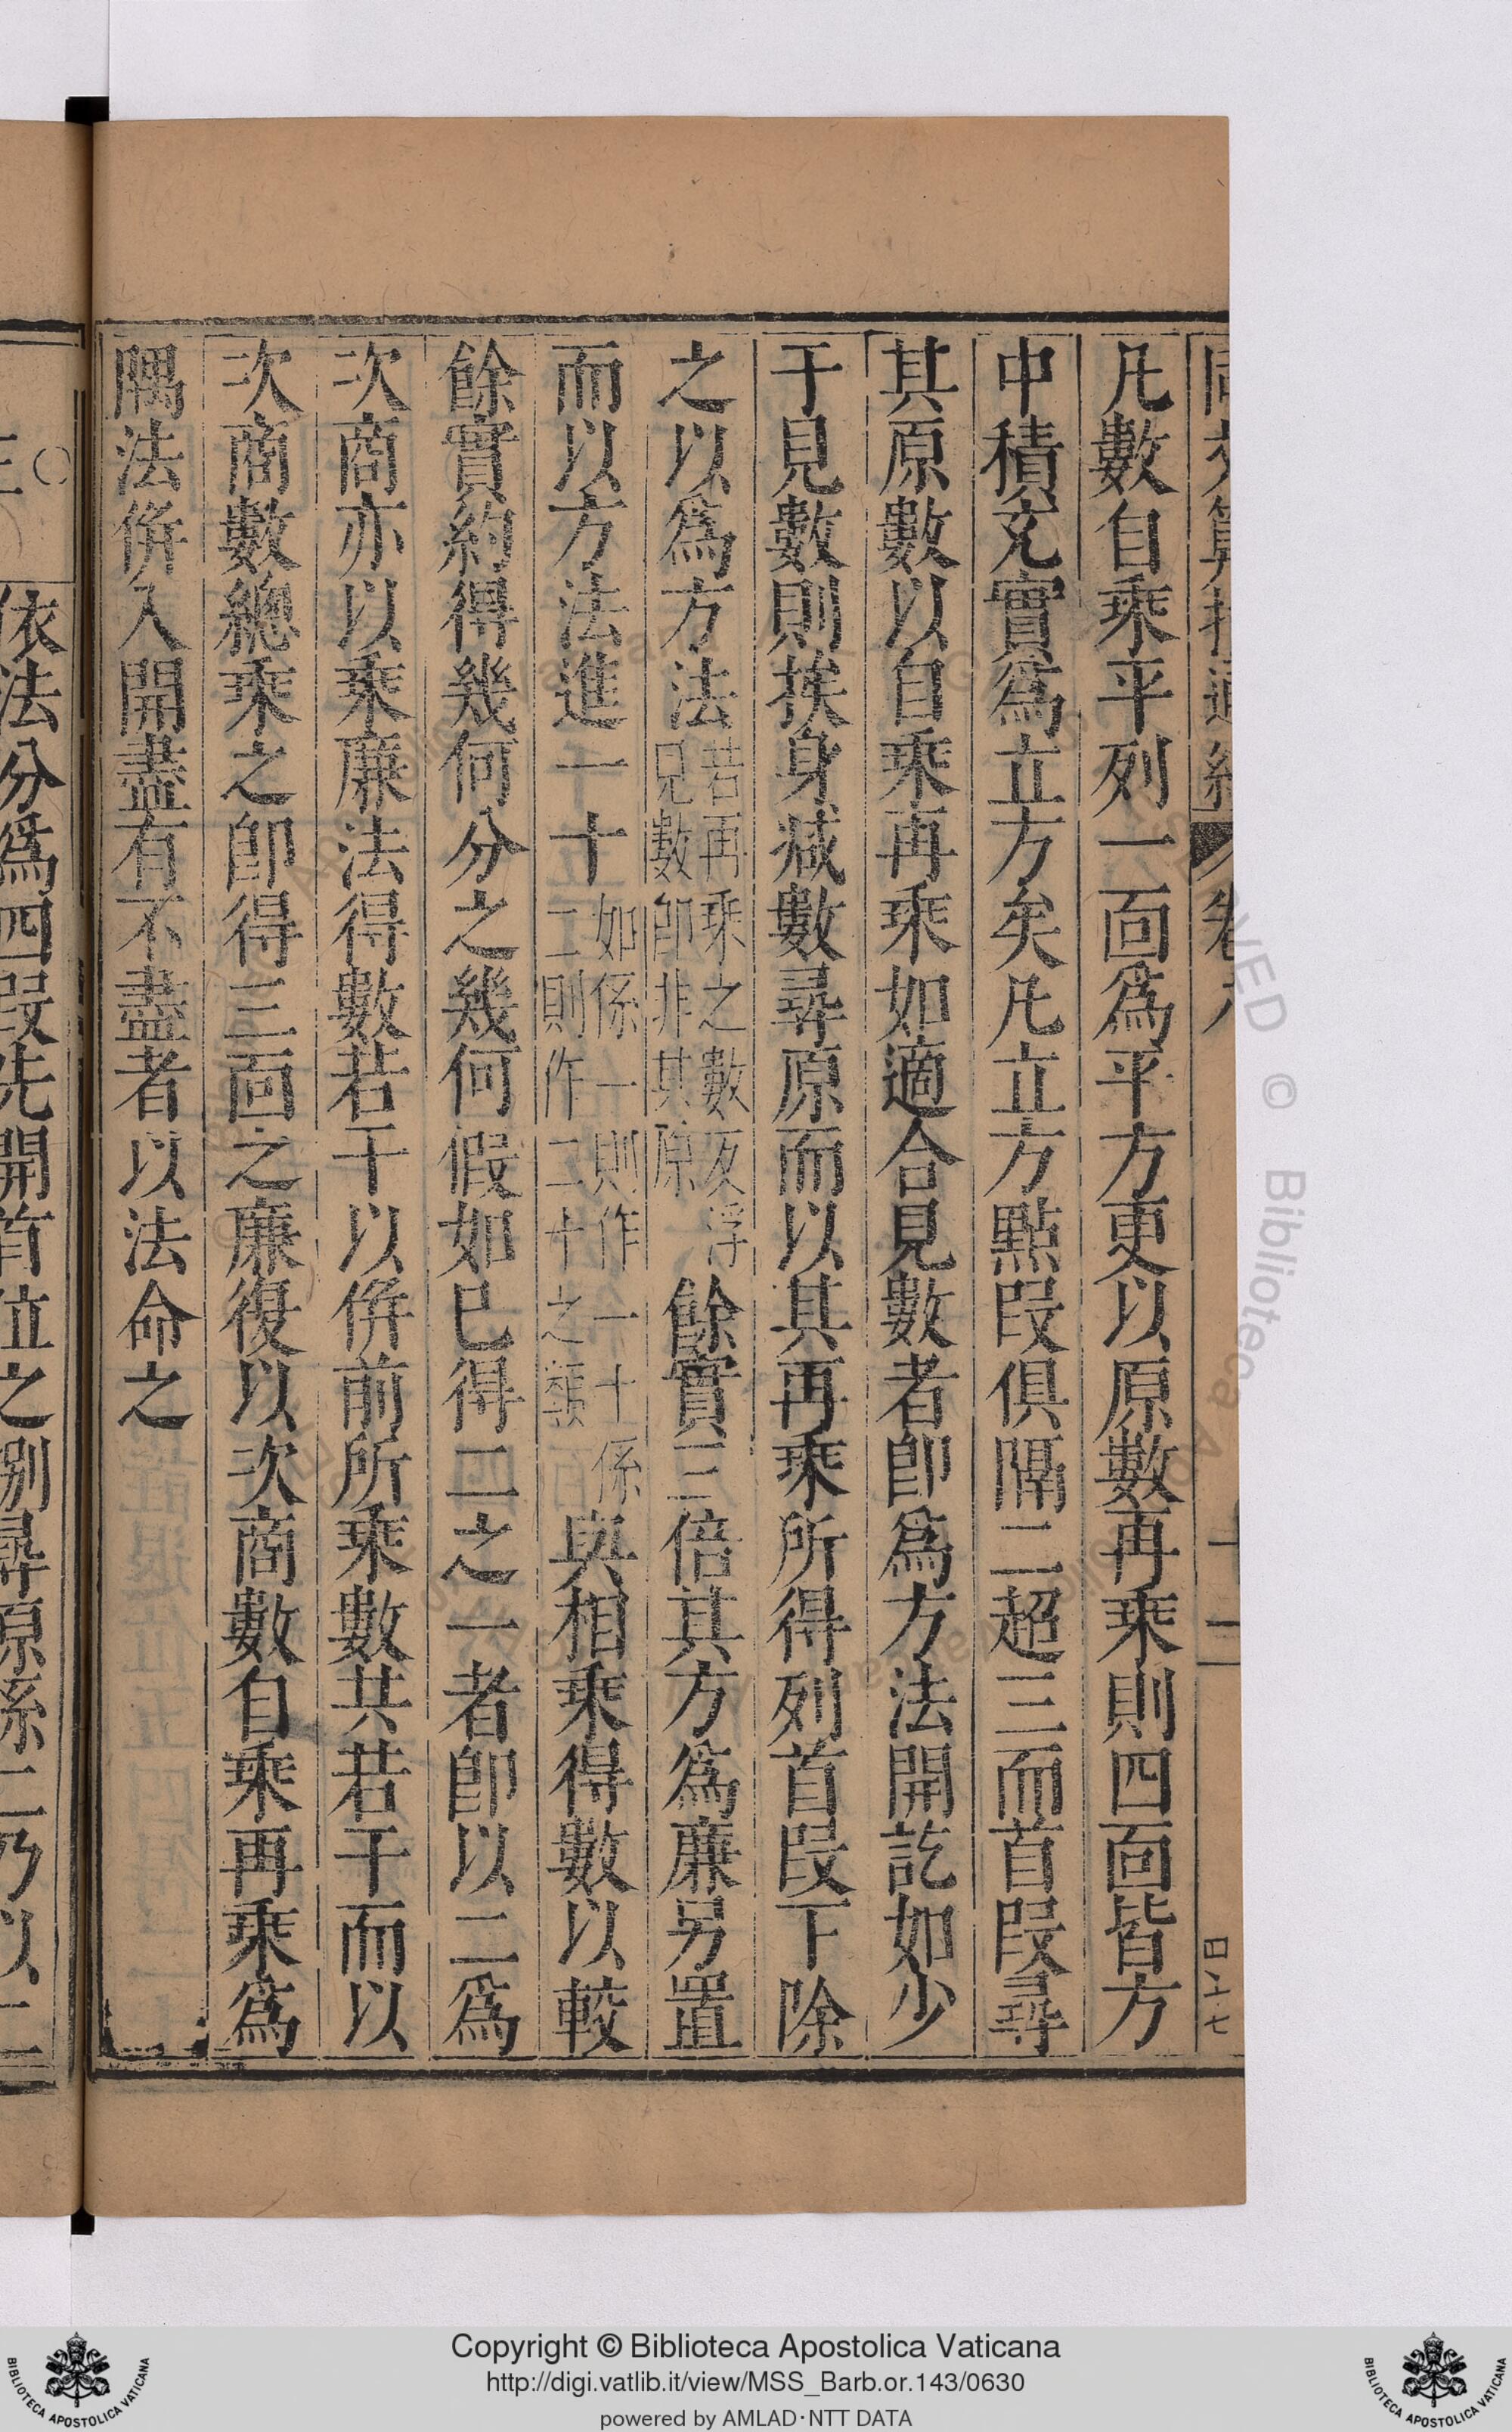 凡數自乘平列一靣爲平方更以原數再乘則四靣皆方
中積充實爲立方矣凡立方點叚俱隔二超三而首叚尋
其原數以自乘再乘如適合見數者卽爲方法開訖如少
于見數則挨身减數尋原而以其再乘所得列首叚下除
之以爲方法若再乘之數反浮見數卽非其原餘實三倍其方爲廉另置
而以方法進一十如係一則作一十係二則作二十之類與相乘得數以較
餘實約得幾何分之幾何假如已得二之一者卽以二爲
次商亦以乘廉法得數若干以併前所乘數共若干而以
次商數總乘之卽得三靣之廉復以次商數自乘再乘爲
隅法併入開盡有不盡者以法命之
依法分爲四叚先開首位之捌尋原系二乃以二
Copyright © Biblioteca Apostolica Vaticana
http://digi.vatlib.it/view/MSS_Barb.or.143/0630
powered by AMLAD·NTT DATA
BIBLIOTECA APOSTOLICA VATICANA
BIBLIOTECA APOSTOLICA VATICANA